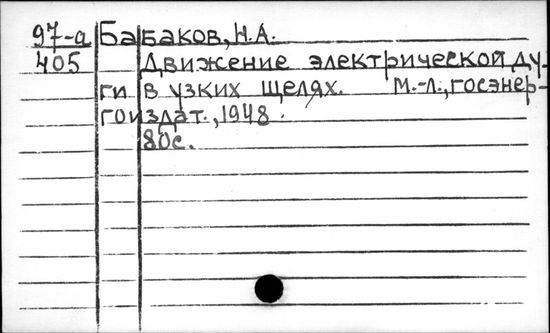 97-а Бабаков, Н.А.
405 Движение электрической ду-
ги в узких щелях. М.-л., госэнер-
гоиздат., 1948.
80с.